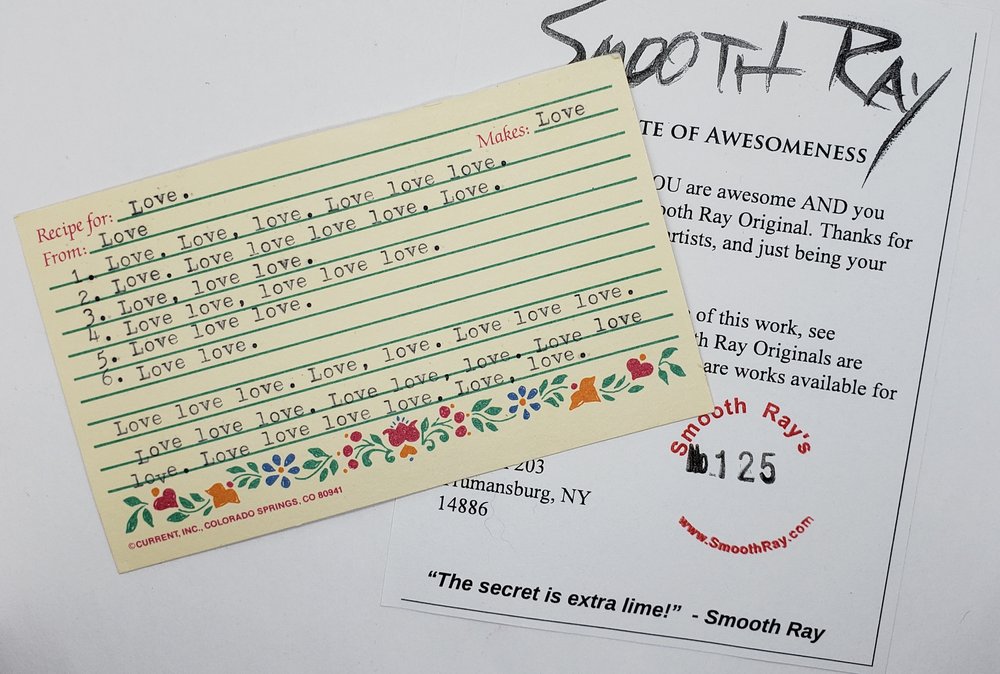 Recipe for: Love.
Makes: Love
From: Love
1. Love, Love, love. Love love love.
2. Love. Love love love love. Love.
3. Love, love love.
4. Love love, love love love.
5. Love love love.
6. Love love.
Love love love. Love, love. Love love love.
Love love love. Love love, love. Love love
love. Love love love love. Love, love.
©CURRENT, INC., COLORADO SPRINGS, CO 80941
SMOOTH RAY
TE OF AWESOMENESS
OU are awesome AND you
ooth Ray Original. Thanks for
artists, and just being your
of this work, see
th Ray Originals are
are works available for
Smooth Ray's
No. 125
www.SmoothRay.com
203
Trumansburg, NY
14886
“The secret is extra lime!” - Smooth Ray